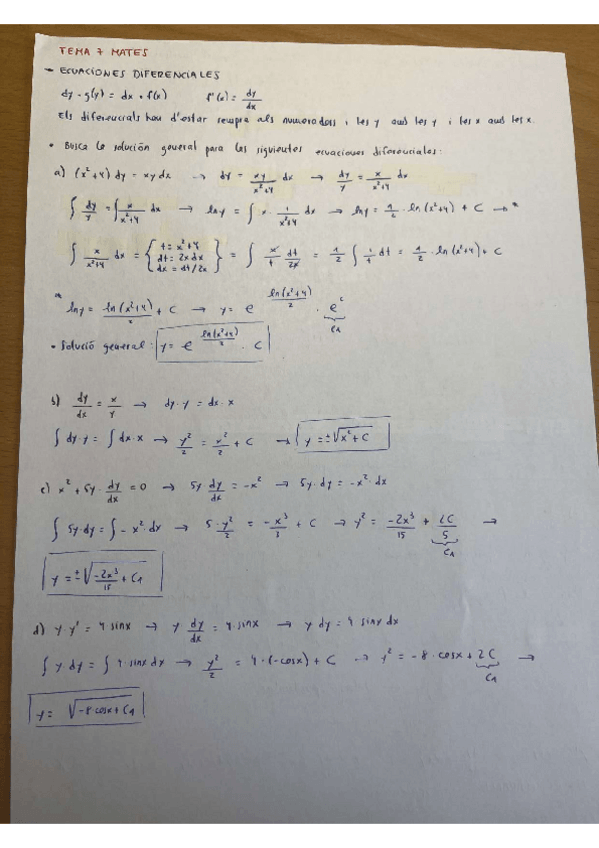 TEMA 7 MATES
→ ECUACIONES DIFERENCIALES
dy · g(y) = dx · f(x)     f'(x) = dy/dx
Els diferencials han d'estar sempre als numeradors i les y amb les y i les x amb les x.
• Busca la solución general para las siguientes ecuaciones diferenciales:
a) (x²+4) dy = xy dx → dy = xy/(x²+4) dx → dy/y = x/(x²+4) dx
∫ dy/y = ∫ x/(x²+4) dx → ln y = ∫ x · 1/(x²+4) dx → ln y = 1/2 · ln(x²+4) + C → *
∫ x/(x²+4) dx = { t = x²+4
dt = 2x dx
dx = dt/2x } = ∫ x/t dt/2x = 1/2 ∫ 1/t dt = 1/2 · ln(x²+4) + C
* ln y = ln(x²+4)/2 + C → y = e^(ln(x²+4)/2) · e^c
C1
• Solució general: y = e^(ln(x²+4)/2) · C
b) dy/dx = x/y → dy·y = dx·x
∫ dy·y = ∫ dx·x → y²/2 = x²/2 + C → y = ±√(x²+C)
c) x² + 5y · dy/dx = 0 → 5y dy/dx = -x² → 5y·dy = -x²·dx
∫ 5y·dy = ∫ -x²·dx → 5·y²/2 = -x³/3 + C → y² = -2x³/15 + 2C/5 →
C1
y = ±√(-2x³/15 + C1)
d) y·y' = 4 sinx → y dy/dx = 4·sinx → y dy = 4 sinx dx
∫ y dy = ∫ 4·sinx dx → y²/2 = 4·(-cosx) + C → y² = -8·cosx + 2C →
C1
y = √(-8·cosx + C1)